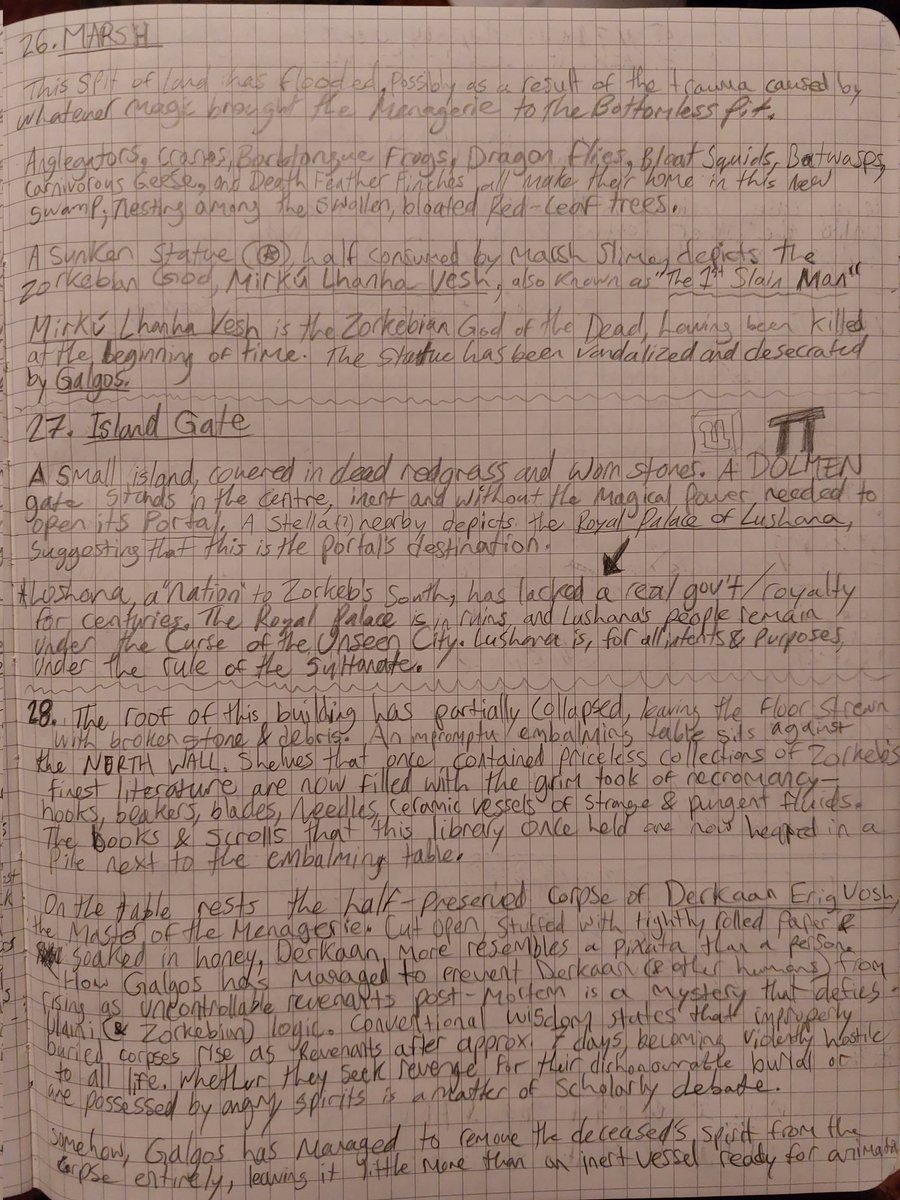 26. MARSH
This spit of land has flooded, possibly as a result of the trauma caused by
whatever magic brought the Menagerie to the Bottomless Pit.
Anglegators, Cranes, Barbtongue Frogs, Dragon Flies, Bloat Squids, Batwasps,
Carnivorous Geese, and Death Feather Finches all make their home in this new
swamp, nesting among the swollen, bloated Red-Leaf trees.
A Sunken Statue (A), half consumed by Marsh Slime, depicts the
Zorkebian God, Mirkú Lhanha Vesh, also known as "The 1st Slain Man"
Mirkú Lhanha Vesh is the Zorkebian God of the Dead, having been killed
at the beginning of time. The statue has been vandalized and desecrated
by Galgos.
27. Island Gate
A small island, covered in dead redgrass and worn stones. A DOLMEN
gate stands in the centre, inert and without the magical power needed to
open its Portal. A Stella(?) nearby depicts the Royal Palace of Lushana,
suggesting that this is the portal's destination.
*Lushana, a "nation" to Zorkeb's South, has lacked a real gov't/royalty
for centuries. The Royal Palace is in ruins, and Lushana's people remain
under the Curse of the Unseen City. Lushana is, for all intents & purposes,
under the rule of the Sultanate.
28. The roof of this building has partially collapsed, leaving the floor strewn
with broken stone & debris. An impromptu embalming table sits against
the NORTH WALL. Shelves that once contained priceless collections of Zorkeb's
finest literature are now filled with the grim tools of necromancy—
hooks, beakers, blades, needles, ceramic vessels of strange & pungent fluids.
The books & scrolls that this library once held are now heaped in a
pile next to the embalming table.
On the table rests the half-preserved corpse of Derkaan Erig Vosh,
the Master of the Menagerie. Cut open, stuffed with tightly rolled paper &
soaked in honey, Derkaan more resembles a pixata than a person.
How Galgos has managed to prevent Derkaan (& other humans) from
rising as uncontrollable revenants post-mortem is a mystery that defies
Ulani (& Zorkebian) logic. Conventional wisdom states that improperly
buried corpses rise as Revenants after approx. 7 days, becoming violently hostile
to all life. Whether they seek revenge for their dishonourable burial or
are possessed by angry spirits is a matter of scholarly debate.
Somehow, Galgos has managed to remove the deceased's spirit from the
corpse entirely, leaving it little more than an inert vessel ready for